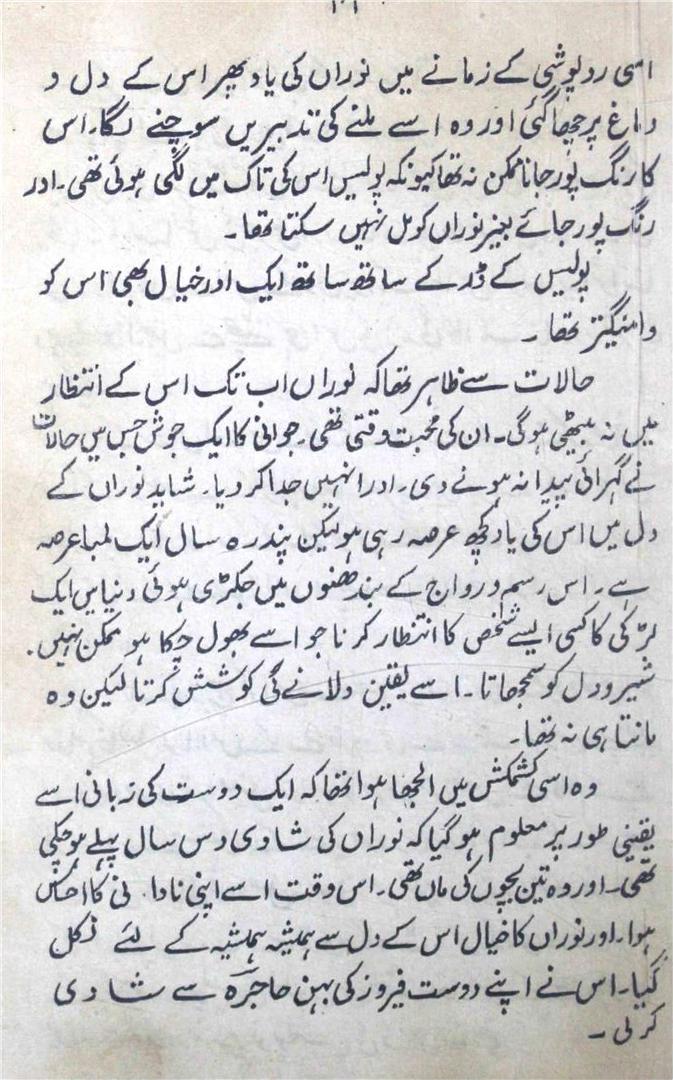 اسی روپوشی کے زمانے میں نوراں کی یاد پھر اس کے دل و
دماغ پر چھا گئی اور وہ اسے ملنے کی تدبیریں سوچنے لگا۔ اس
کا رنگ پور جانا ممکن نہ تھا کیونکہ پولیس اس کی تاک میں لگی ہوئی تھی۔ اور
رنگ پور جائے بغیر نوراں کو مل نہیں سکتا تھا۔
پولیس کے ڈر کے ساتھ ساتھ ایک اور خیال بھی اس کو
دامنگیر تھا۔
حالات سے ظاہر تھا کہ نوراں اب تک اس کے انتظار
میں نہ بیٹھی ہوگی۔ ان کی محبت وقتی تھی۔ جوانی کا ایک جوش جس میں حالات
نے گہرائی پیدا نہ ہونے دی۔ اور انہیں جدا کر دیا۔ شاید نوراں کے
دل میں اس کی یاد کچھ عرصہ رہی ہو لیکن پندرہ سال ایک لمبا عرصہ
ہے۔ اس رسم و رواج کے بندھنوں میں جکڑی ہوئی دنیا میں ایک
لڑکی کا کسی ایسے شخص کا انتظار کرنا جو اسے بھول چکا ہو ممکن نہیں۔
شیرو دل کو سمجھاتا۔ اسے یقین دلانے کی کوشش کرتا لیکن وہ
مانتا ہی نہ تھا۔
وہ اسی کشمکش میں الجھا ہوا تھا کہ ایک دوست کی زبانی اسے
یقینی طور پر معلوم ہو گیا کہ نوراں کی شادی دس سال پہلے ہو چکی
تھی۔ اور وہ تین بچوں کی ماں تھی۔ اس وقت اسے اپنی نادانی کا احساس
ہوا۔ اور نوراں کا خیال اس کے دل سے ہمیشہ ہمیشہ کے لئے نکل
گیا۔ اس نے اپنے دوست فیروز کی بہن حاجرہ سے شادی
کر لی۔